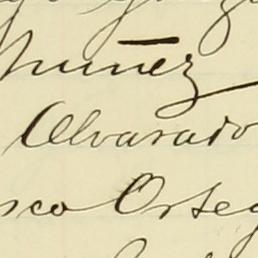 nuñez
Alvarado
sco Orteg